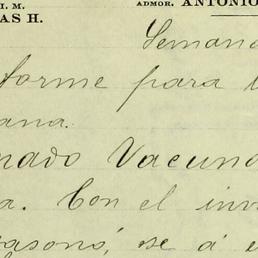 I. M.
AS H.
ADMOR. ANTONIO
Semana
forme para
ana.
nado Vacuno
a. Con el inv
asono, se á e